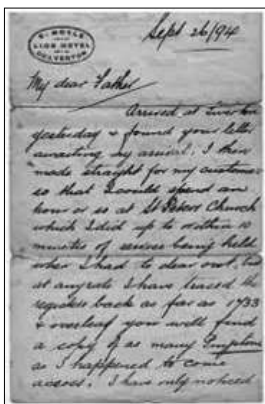 E. HOYLE
LION HOTEL
DULVERTON
Sept 26/94
My dear Father
Arrived at Tiverton
yesterday & found your letter
awaiting my arrival. I then
made straight for my customer
so that I could spend an
hour or so at St Peters Church
which I did up to within 10
minutes of service being held
when I had to clear out, but
at any rate I have traced the
register back as far as 1733
& overleaf you will find
a copy of as many
as I happened to come
across. I have only noticed